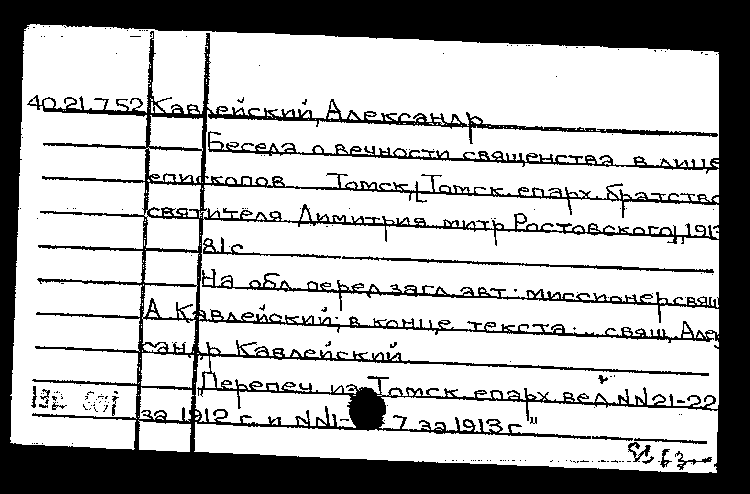 40.21.752 Кавлейский, Александр
Беседа о вечности священства в лице
епископов Томск, [Томск. епарх. братство
святителя Димитрия митр Ростовского], 1913
81с
На обл. перед загл. авт.: миссионер свящ
А Кавлейский; в конце текста: ... свящ. Алек
сандр Кавлейский
"Перепеч. из Томск. епарх. вед. NN21-22
за 1912 г. и NN1- 7 за 1913 г"